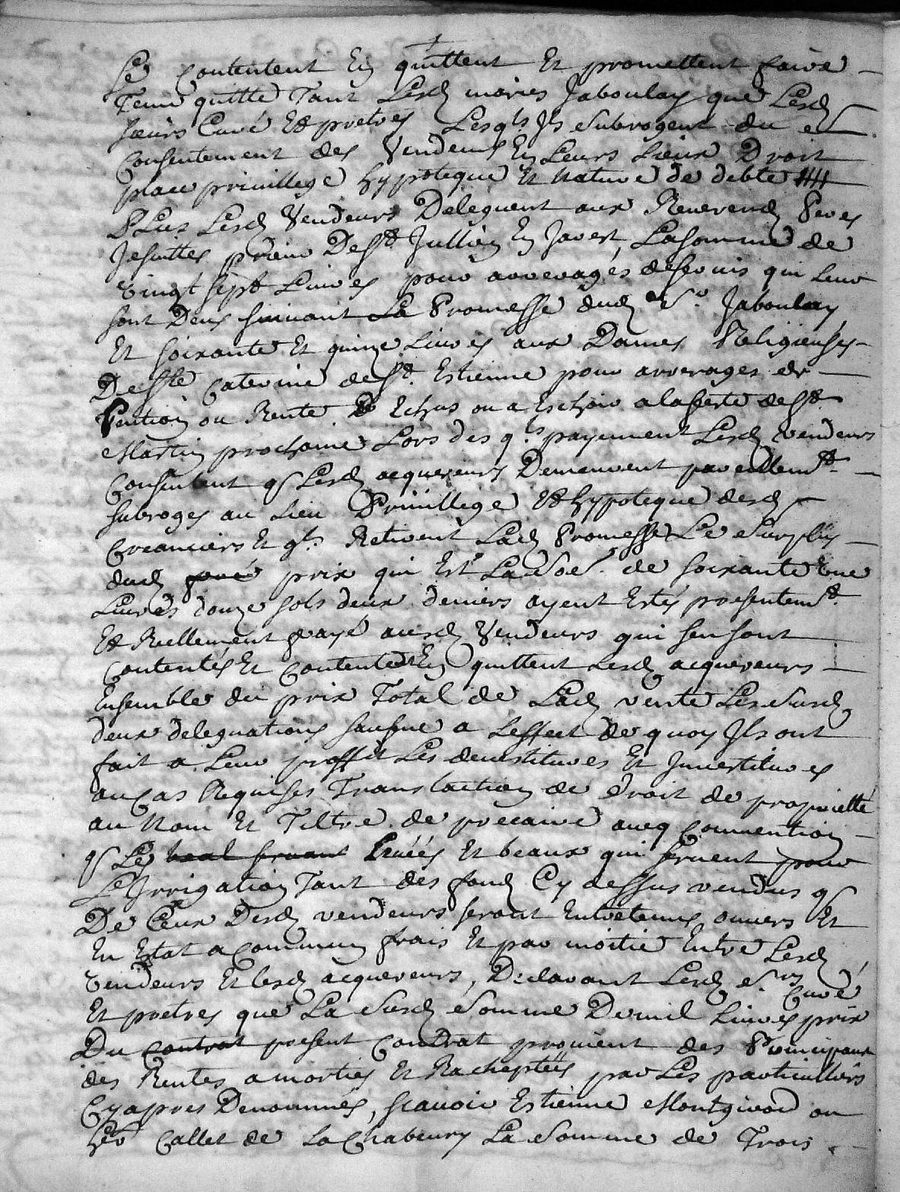 Se Contentent En quittent Et promettent faire
Tenir quitte Tant Lesd mariés Jaboulay que Lesd
sieurs Curé Et pretres Lesqls Ils subrogent du
Consentement des Vendeurs En Leurs Lieux Droit
place priuillege hypoteque Et Nature de debte
PLus Lesd Vendeurs Deleguent aux Reuerend Peres
Jesuittes prieur De St Jullien En Jarest, La somme de
Vingt sept Liures pour arrerages de seruis qui Leur
sont Deus suiuant La Promesse dud Sr Jaboulay
Et soixante Et quinze Liures aux Dames Religieuses
De Ste Caterine de St Estienne pour arrerages de
Pention ou Rente Echus ou a Eschoir a la feste de St
Martin prochaine Lors des qls payement Lesd Vendeurs
Consentent q Lesd acquereurs Demeurent pareillemt
subroges au Lieu Priuillege Et hypoteque desd
Creanciers Et qls Retirent Lad Promesse, Le surplus
dud prix qui Est La Soe de soixante une
Liures douze sols deux deniers ayent Estés presentemt
Et Reellement payé ausd Vendeurs qui sen sont
Contentés Et Contentent En quittent Lesd acquereurs
Ensemble du prix Total de Lad vente Les susd
deux delegations sauf a Leffect de quoy Ils ont
fait a Leur proffit Les demistitures Et Inuestitures
au Cas Requises Translaction de droit de proprietté
au Nom Et Tiltre de precaire aueq Conuention
q Le beal seruant Et beaux qui seruent pour
Le Irrigation Tant des fond Cy dessus vendus q
De Ceux Desd vendeurs seront Entretenus ouuers Et
En Estat a Commun frais Et par moitié Entre Lesd
Vendeurs Et Lesd acquereurs, Declarant Lesd Srs Curé
Et pretres que La susd somme De mil Liures prix
Du contrat present Contrat prouient des Principaux
des Rentes amorties Et Racheptées par Les particuliers
Cy apres Denommés, scauoir Estienne Montgirod ou
Callet de La Chabeury La somme de Trois